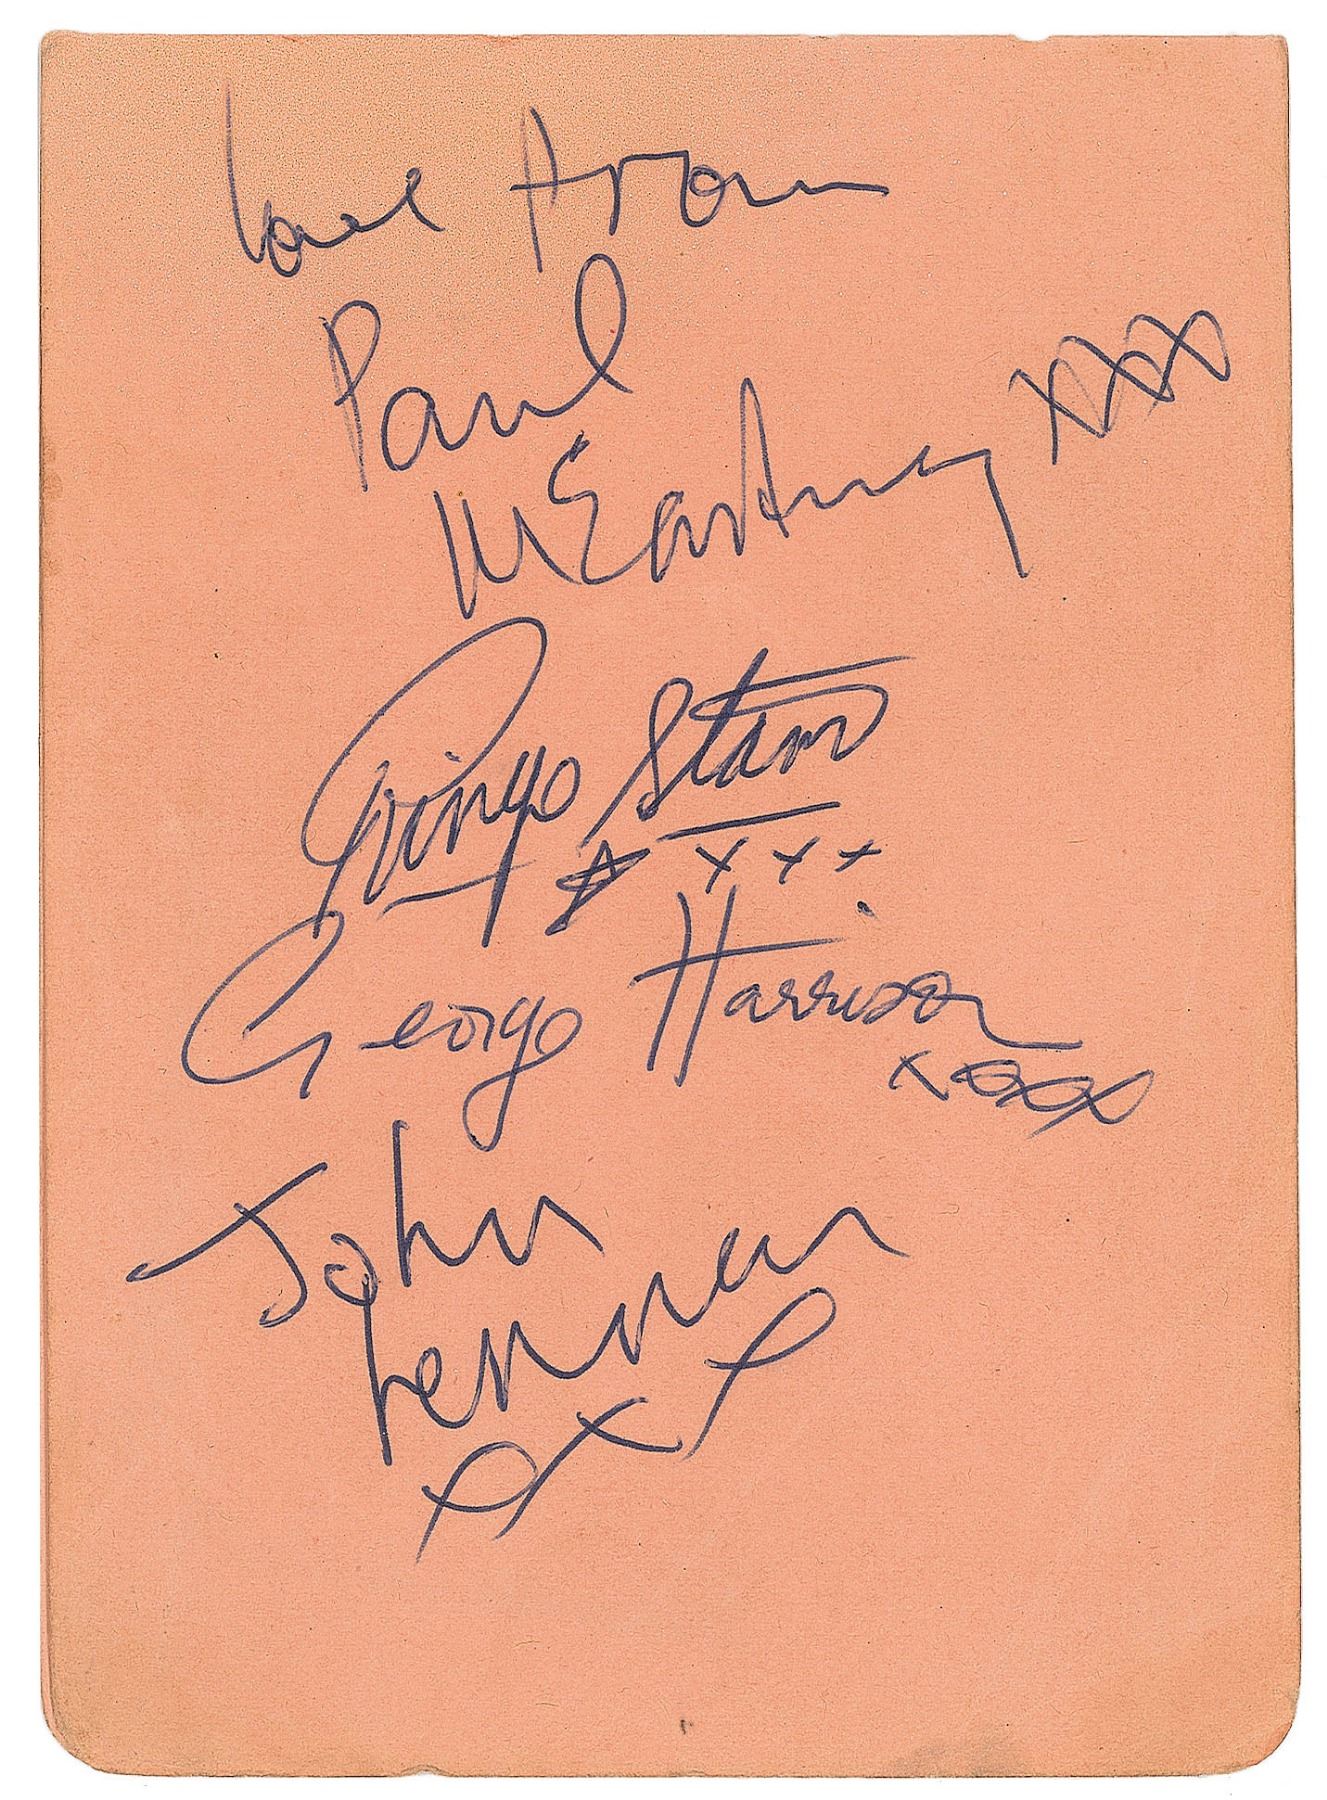 love from
Paul
McCartney xxx
Ringo Starr
☆ x x x
George Harrison
xxxx
John
Lennon
xxx